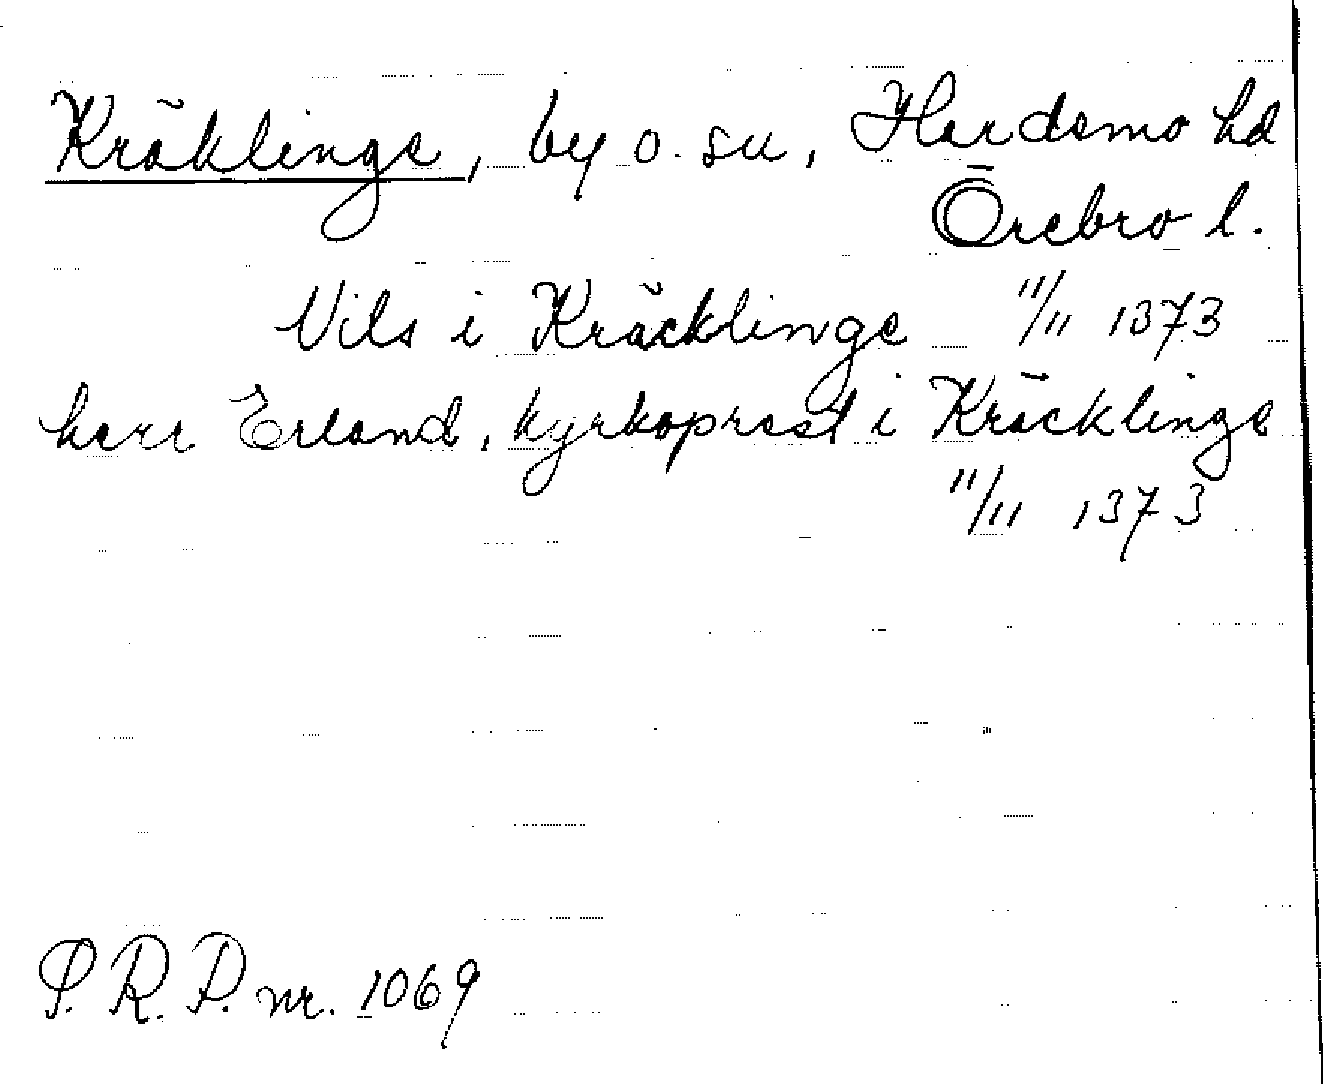 Kräklinge, by o. sn, Hardemo hd
Örebro l.
Nils i Kräcklinge 11/11 1373
herr Erland, kyrkoprest i Kräcklinge
11/11 1373
P.R.P. nr. 1069